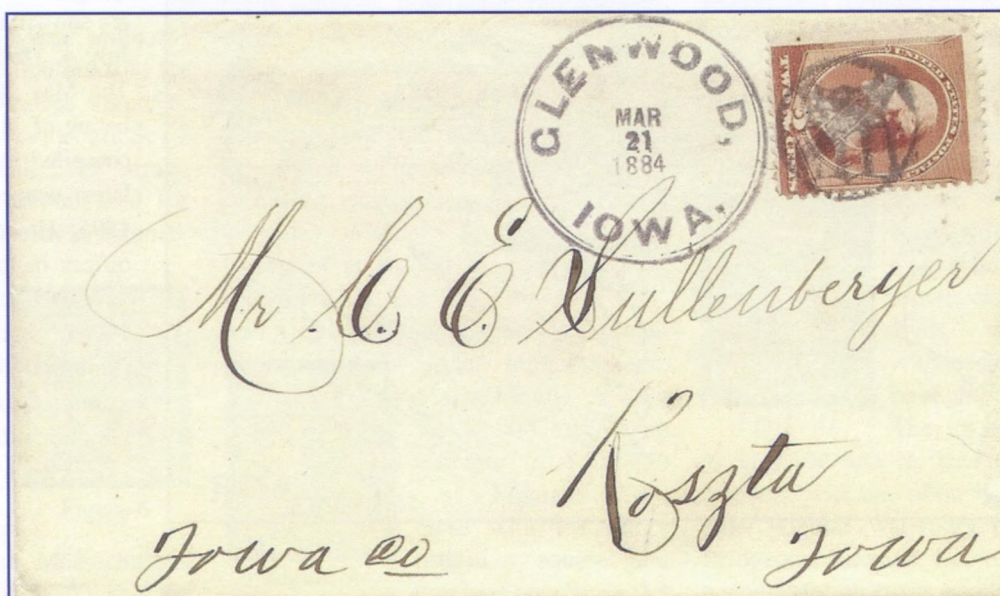 GLENWOOD,
MAR
21
1884
IOWA.
UNITED STATES POSTAGE
Mr. C. E. Sullenberger
Koszta
Iowa co Iowa